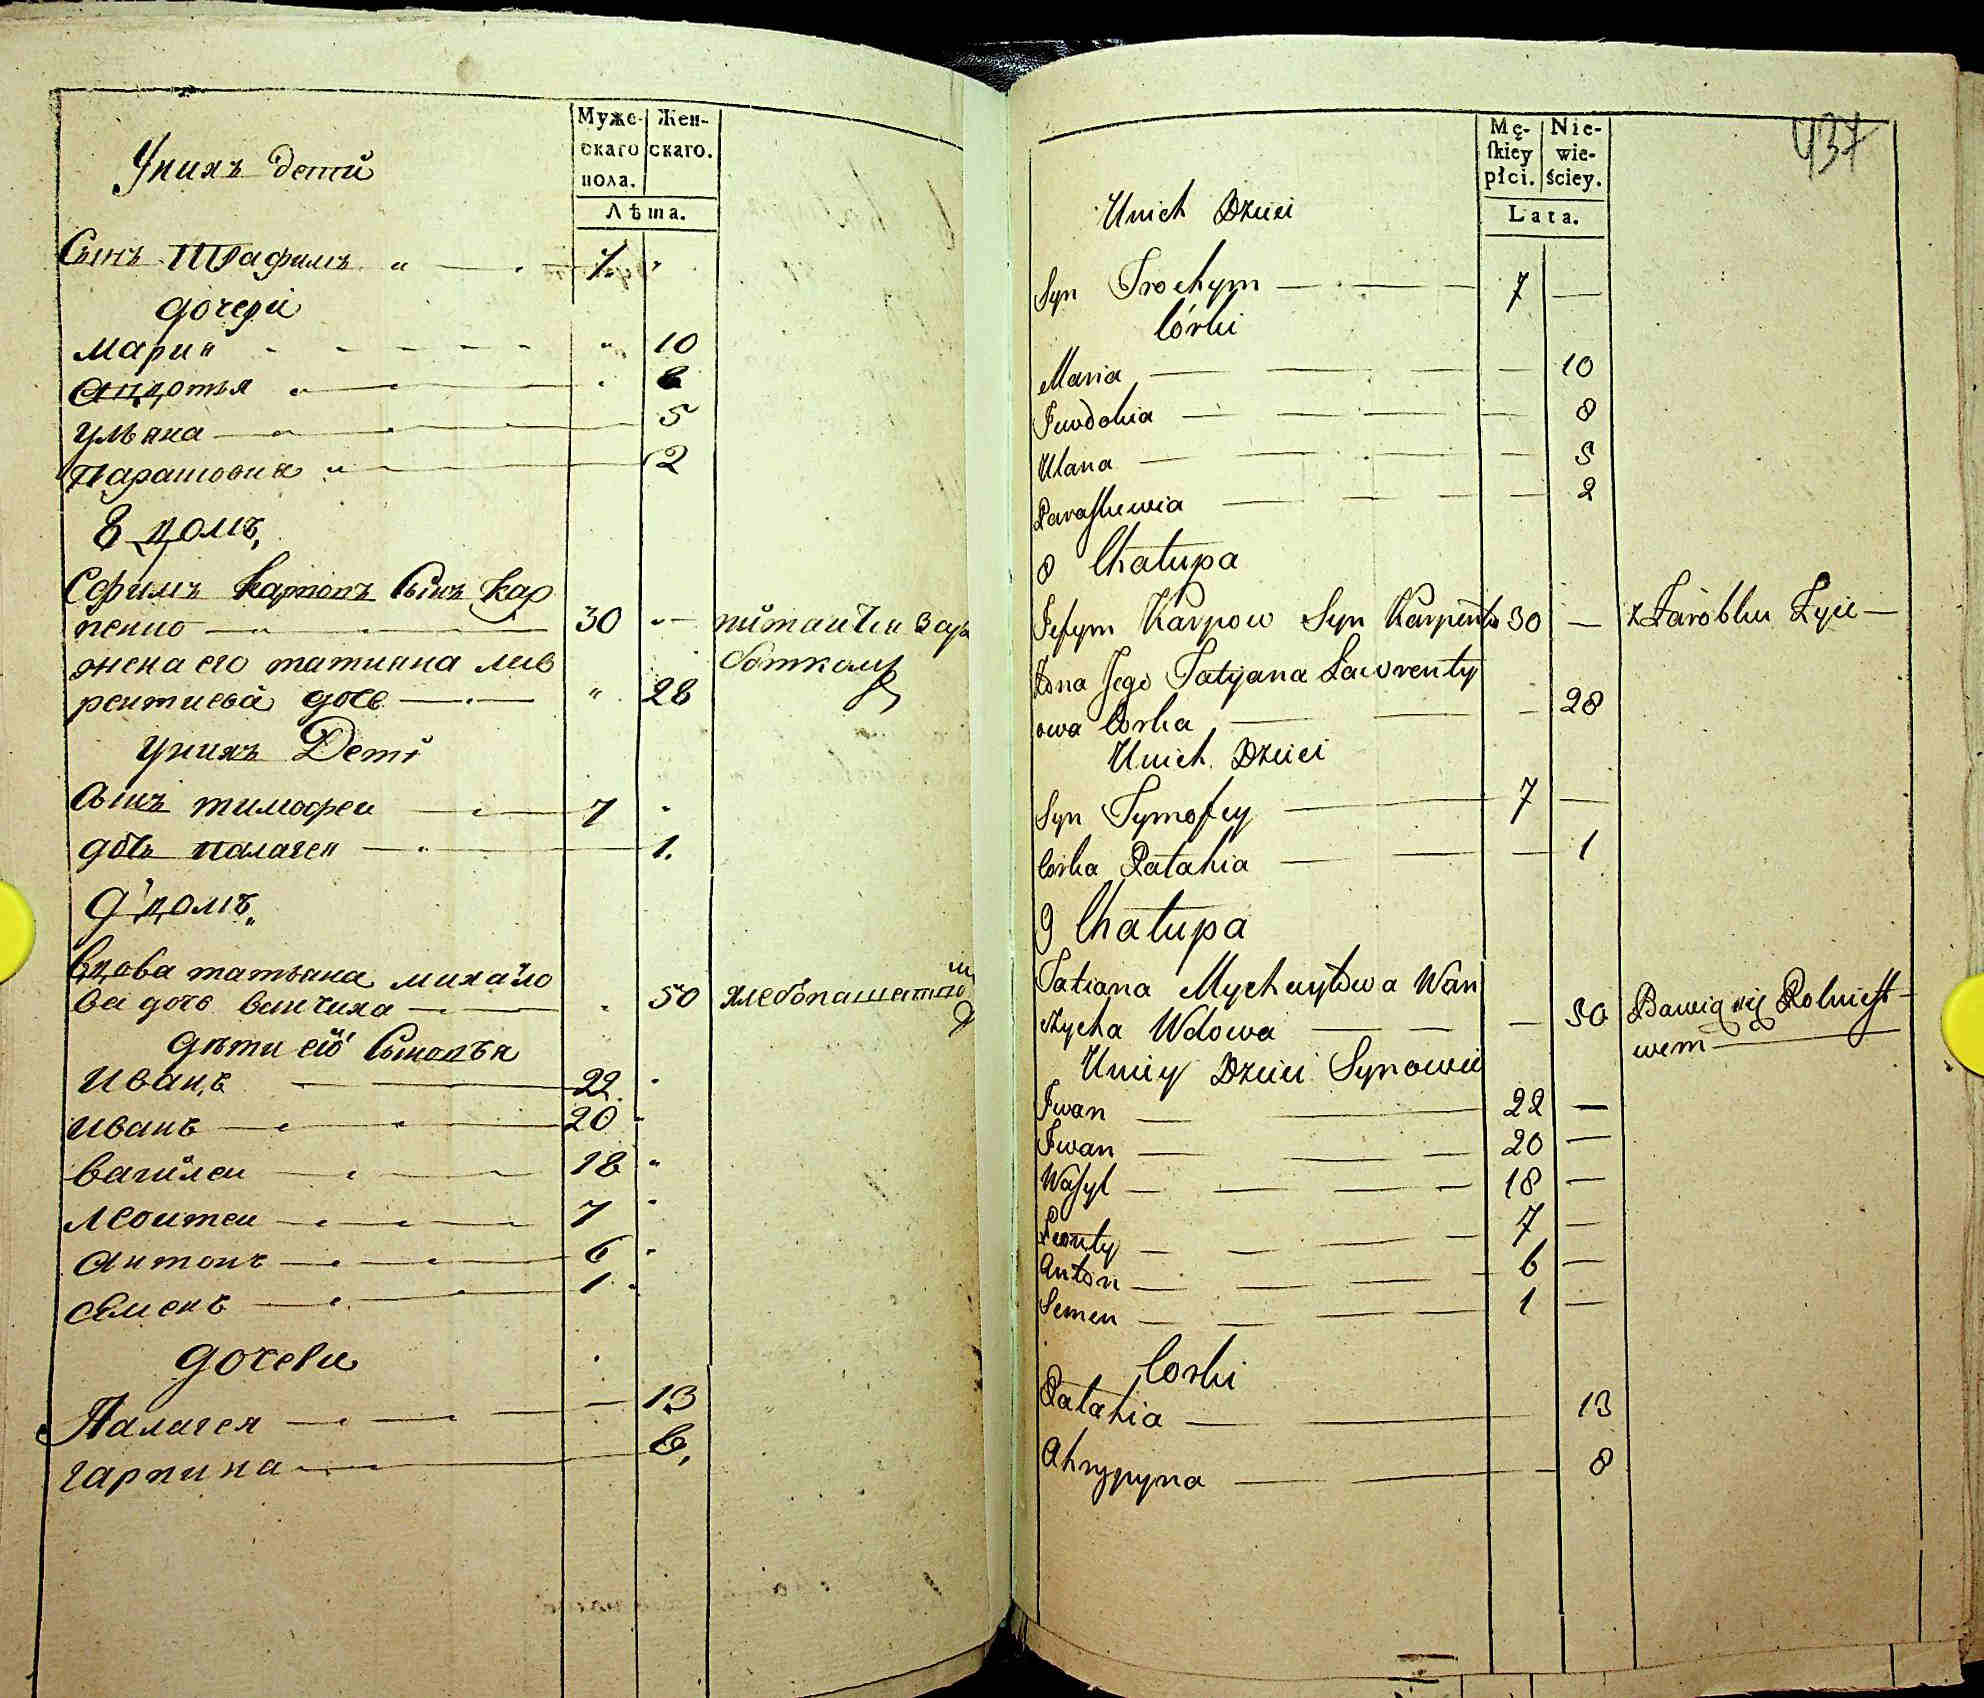 Мужескаго пола.
Женскаго.
Лѣта.
Унихъ дети
Сынъ Трафимъ 7
дочери
Мария 10
Авдотья 8
Ульяна 5
Парасковия 2
8 домъ
Ефимъ Карповъ Сынъ Кар
пенко 30 питаитца Зара
боткомъ
жена его татияна лав
рентиева дочь 28
унихъ Дети
Сынъ тимофеи 7
дочь палагея 1.
9 домъ
вдова татьяна михайло
ва дочь 50 хлебопашеством
дети её Сыновья
Иванъ 22
иванъ 20
василеи 18
леонтеи 7
антонъ 6
семенъ 1
дочери
Палагея 13
гарпина 8
437
Mę-
skiey
płci.
Nie-
wie-
ściey.
Lata.
Unich Dzieci
Syn Trochym 7
Córki
Maria 10
Iewdokia 8
Ulana 5
Paraskiewia 2
8 Chałupa
Iefym Karpow Syn Karpenko 30 z Zaróbku Żyie
Żona Jego Tatyjana Ławrenty
owa Corka 28
Unich Dzieci
Syn Tymofey 7
Corka Pałahia 1
9 Chałupa
Tatiana Mychayłowa Wan
życha Wdowa 50 Bawią się Rolnict
wem
Uniey Dzieci Synowie
Iwan 22
Iwan 20
Wasyl 18
Leonty 7
Anton 6
Semen 1
Corki
Pałahia 13
Ahrypyna 8